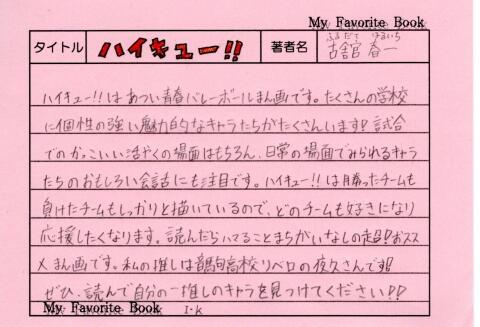 My Favorite Book
タイトル ハイキュー!! 著者名 ふるだて はるいち 古舘 春一
ハイキュー!!はあつい青春バレーボールまん画です。たくさんの学校
に個性の強い魅力的なキャラたちがたくさんいます!試合
でのかっこいい活やくの場面はもちろん、日常の場面でみられるキャラ
たちのおもしろい会話にも注目です。ハイキュー!!は勝ったチームも
負けたチームもしっかりと描いているので、どのチームも好きになり
応援したくなります。読んだらハマることまちがいなしの超!おスス
メまん画です。私の推しは音駒高校リベロの夜久さんです!
ぜひ、読んで自分の一推しのキャラを見つけてください!!
My Favorite Book I.K